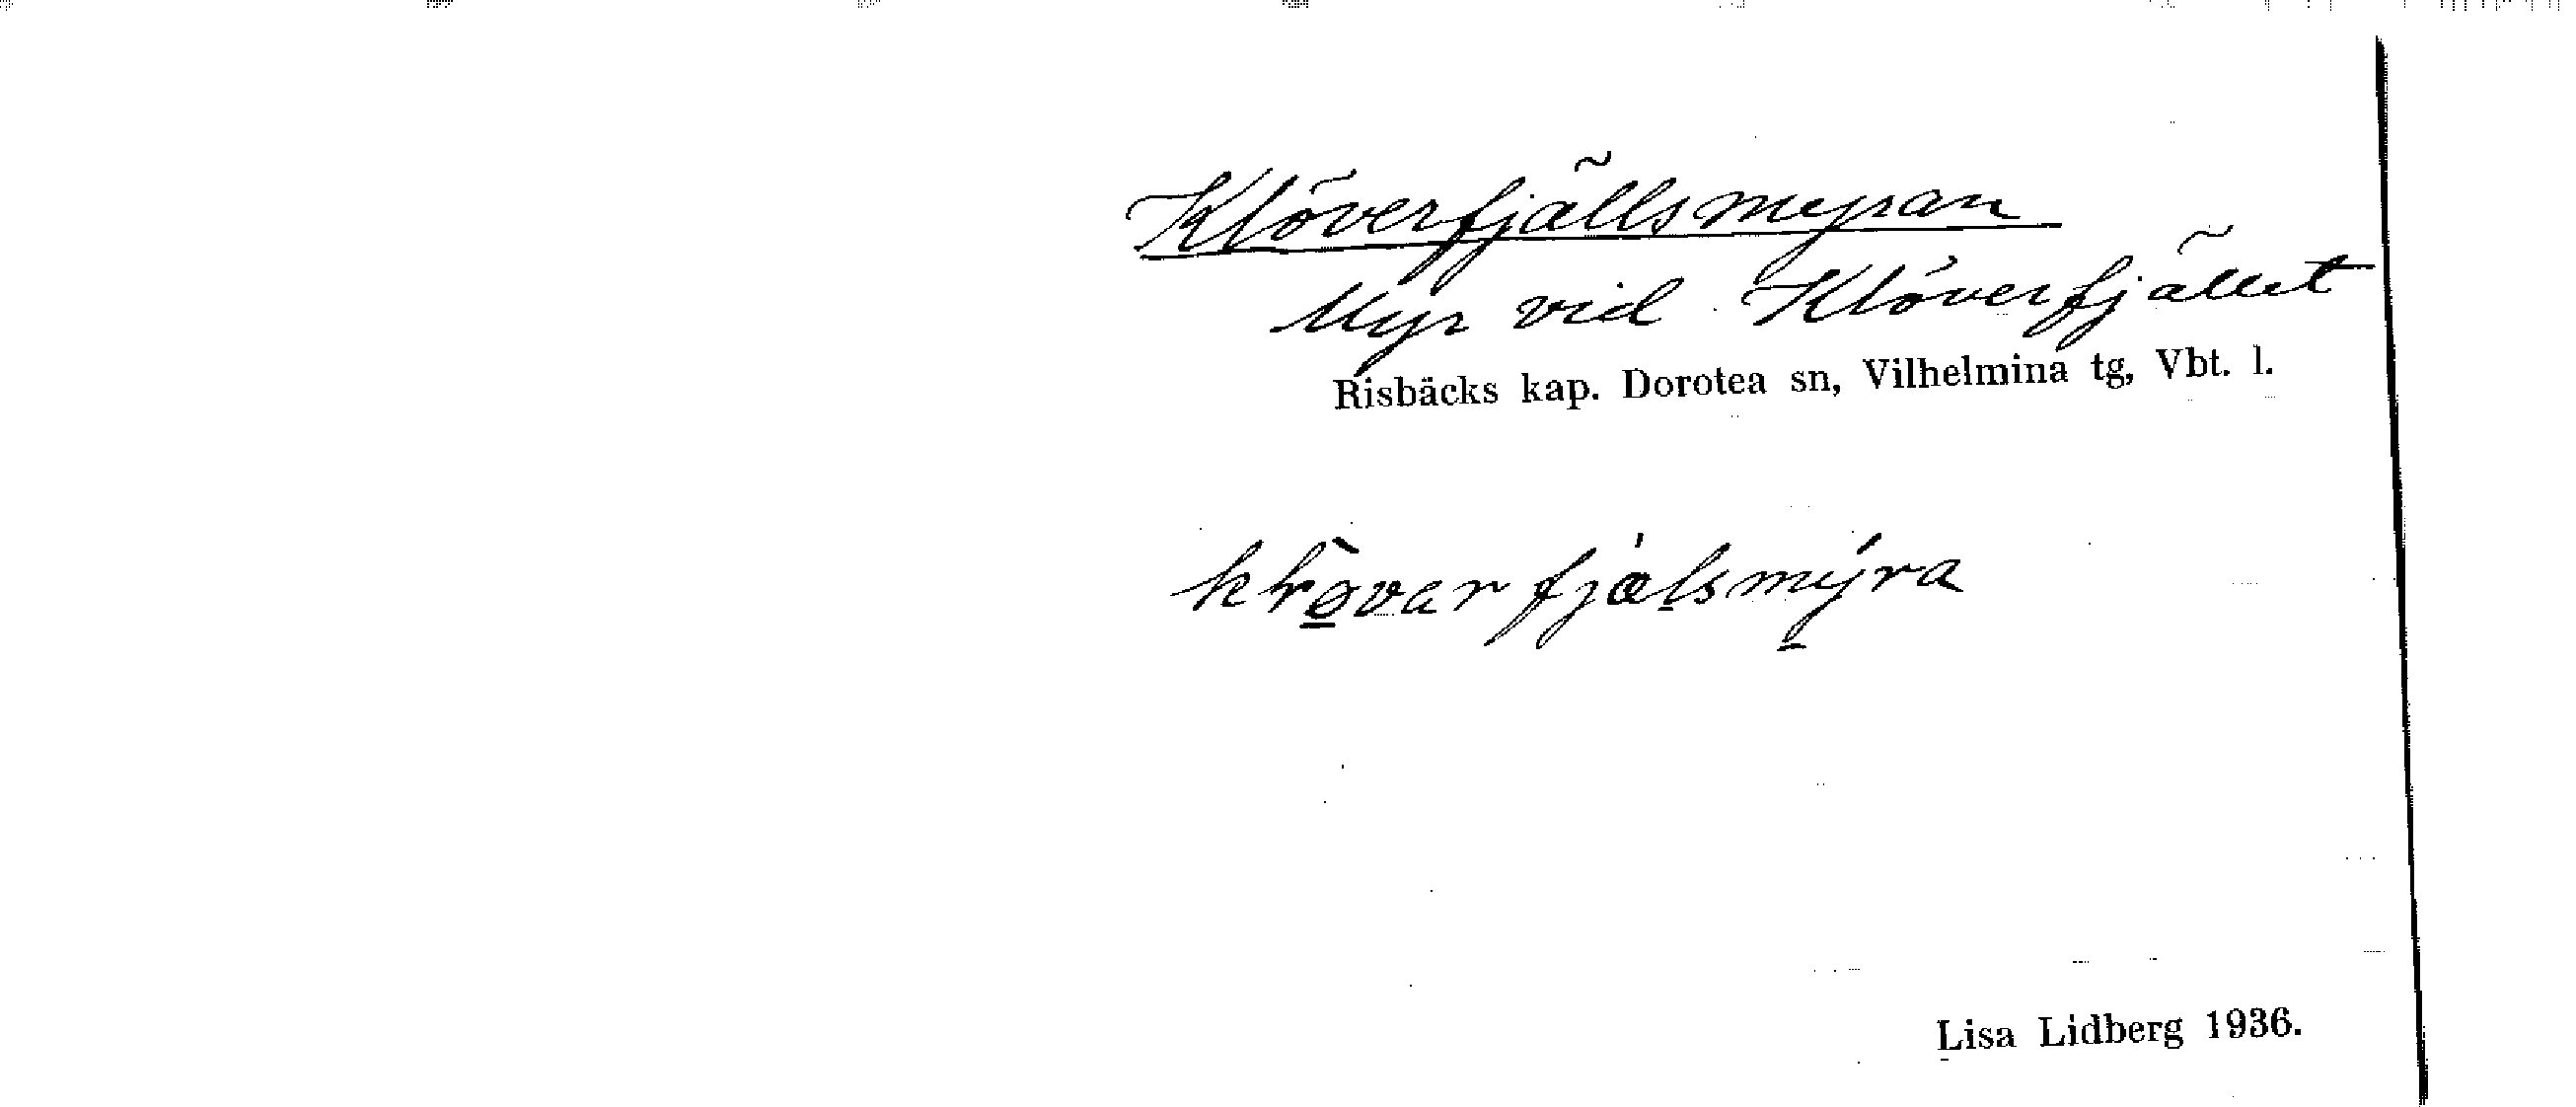 Klöverfjällsmyran
Myr vid Klöverfjället
Risbäcks kap. Dorotea sn, Vilhelmina tg, Vbt. l.
Lisa Lidberg 1936.